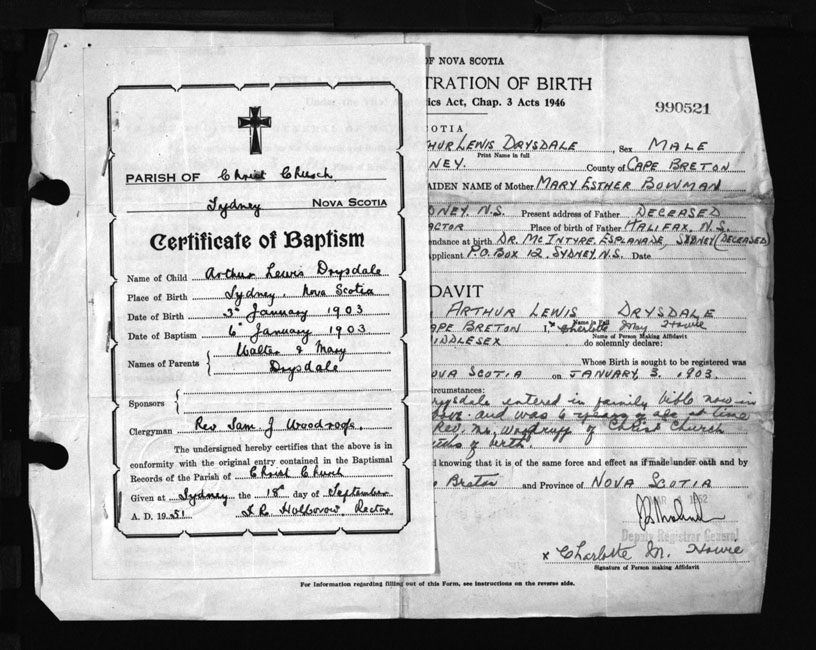 PARISH OF Christ Church
Sydney NOVA SCOTIA
Certificate of Baptism
Name of Child Arthur Lewis Drysdale
Place of Birth Sydney, Nova Scotia
Date of Birth 3rd January 1903
Date of Baptism 6th January 1903
Names of Parents { Walter & Mary
Drysdale
Sponsors {
Clergyman Rev Sam. J Woodroofe.
The undersigned hereby certifies that the above is in
conformity with the original entry contained in the Baptismal
Records of the Parish of Christ Church
Given at Sydney the 18th day of September
A. D. 1951 Rector
OF NOVA SCOTIA
TRATION OF BIRTH
ics Act, Chap. 3 Acts 1946
990521
OTIA
HUR LEWIS DRYSDALE, Sex MALE
Print Name in full
NEY. County of CAPE BRETON
AIDEN NAME of Mother MARY ESTHER BOWMAN
DNEY. N.S. Present address of Father DECEASED
ACTOR Place of birth of Father HALIFAX, N.S.
endance at birth DR. McINTYRE, ESPLANADE, SYDNEY (DECEASED)
pplicant P.O. BOX 12, SYDNEY, N.S. Date
DAVIT
ARTHUR LEWIS DRYSDALE
Name in Full
CAPE BRETON I, Charlotte May Howie
Name of Person Making Affidavit
IDDLESEX do solemnly declare:
Whose Birth is sought to be registered was
OVA SCOTIA on JANUARY, 3, 1903.
ircumstances:
rysdale entered in family bible now in
and was 6 years of age at time
Rev. Mr. Woodruff of Christ Church
of birth.
d knowing that it is of the same force and effect as if made under oath and by
Breton and Province of NOVA SCOTIA
Deputy Registrar General
x Charlotte M. Howie
Signature of Person making Affidavit
For Information regarding filling out of this Form, see instructions on the reverse side.